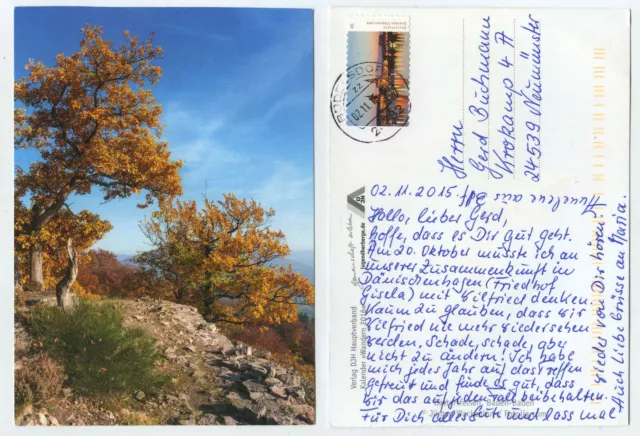 Herrn
Gerd Buchmann
Krokamp 4 A
24539 Neumünster
02.11.2015
Hallo, lieber Gerd,
hoffe, dass es Dir gut geht.
Am 20. Oktober musste ich an
unserer Zusammenkunft in
Dänischenhagen (Friedhof
Gisela) mit Wilfried denken.
Kaum zu glauben, dass wir
Wilfried nie mehr wiedersehen
werden. Schade, schade, aber
nicht zu ändern! Ich habe
mich jedes Jahr auf das Treffen
gefreut und finde es gut, dass
wir das auf jeden Fall beibehalten.
Für Dich alles Gute und lass mal
wieder von Dir hören!
Auch liebe Grüsse an Maria.
Verlag DJH Hauptverband
Kalender »Wandern 2014«
Gemeinschaft erleben
jugendherberge.de
DJH